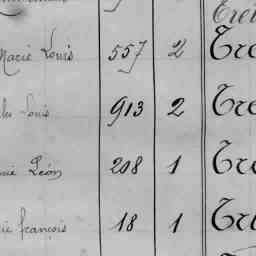 Trei
Marie Louis 557 2 Tre
les Louis 913 2 Tre
rie Léon 208 1 Tre
rie françois 18 1 Tri